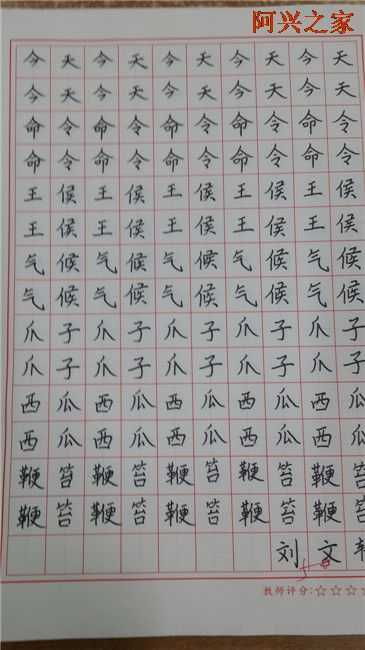 阿兴之家
今天今天今天今天今天
今天今天今天今天今天
命令命令命令命令命令
命令命令命令命令命令
王侯王侯王侯王侯王侯
王侯王侯王侯王侯王侯
气候气候气候气候气候
气候气候气候气候气候
爪子爪子爪子爪子爪子
爪子爪子爪子爪子爪子
西瓜西瓜西瓜西瓜西瓜
西瓜西瓜西瓜西瓜西瓜
鞭笞鞭笞鞭笞鞭笞鞭笞
鞭笞鞭笞鞭笞鞭笞鞭笞
刘文
教师评分:☆☆☆☆